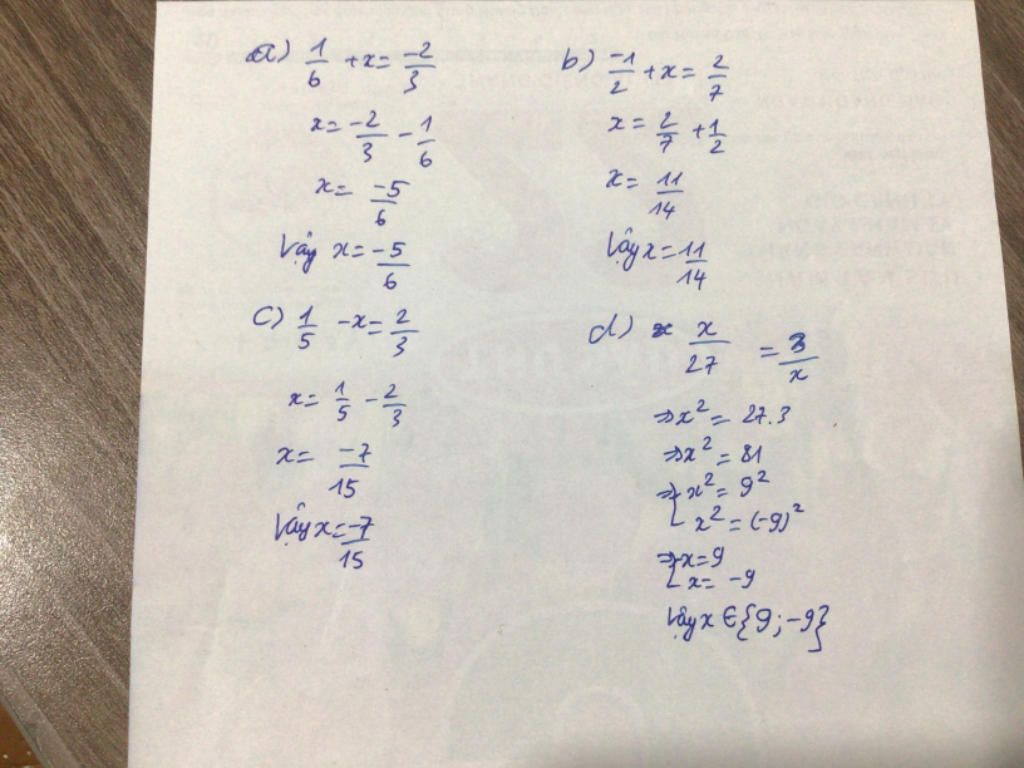 a) 1/6 + x = -2/3
x = -2/3 - 1/6
x = -5/6
Vậy x = -5/6
b) -1/2 + x = 2/7
x = 2/7 + 1/2
x = 11/14
Vậy x = 11/14
c) 1/5 - x = 2/3
x = 1/5 - 2/3
x = -7/15
Vậy x = -7/15
d) x/27 = 3/x
⇒ x² = 27.3
⇒ x² = 81
⇒ [ x² = 9²
x² = (-9)²
⇒ [ x = 9
x = -9
Vậy x ∈ {9; -9}